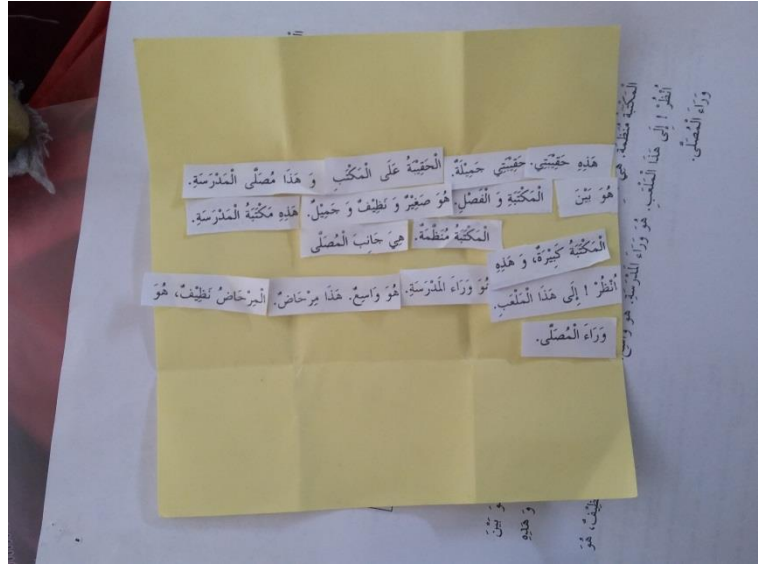 هَذِهِ حَقِيْبَتِي. حَقِيْبَتِي جَمِيْلَةٌ. الْحَقِيْبَةُ عَلَى الْمَكْتَبِ وَ هَذَا مُصَلَّى الْمَدْرَسَةِ.
هُوَ بَيْنَ الْمَكْتَبَةِ وَ الْفَصْلِ. هُوَ صَغِيْرٌ وَ نَظِيْفٌ وَ جَمِيْلٌ. هَذِهِ مَكْتَبَةُ الْمَدْرَسَةِ.
الْمَكْتَبَةُ كَبِيْرَةٌ، وَ هَذِهِ الْمَكْتَبَةُ مُنَظَّمَةٌ. هِيَ جَانِبَ الْمُصَلَى
اُنْظُرْ ! إِلَى هَذَا الْمَلْعَبِ. هُوَ وَرَاءَ الْمَدْرَسَةِ. هُوَ وَاسِعٌ. هَذَا مِرْحَاضٌ. الْمِرْحَاضُ نَظِيْفٌ، هُوَ
وَرَاءَ الْمُصَلَّى.
الْمَكْتَبَةُ مُنَظَّمَةٌ. هِيَ
اُنْظُرْ ! إِلَى هَذَا الْمَلْعَبِ. هُوَ وَرَاءَ الْمَدْرَسَةِ. هُوَ وَاسِعٌ.
وَرَاءَ الْمُصَلَّى.
هُوَ بَيْنَ
وَ هَذِهِ
نَظِيْفٌ، هُوَ